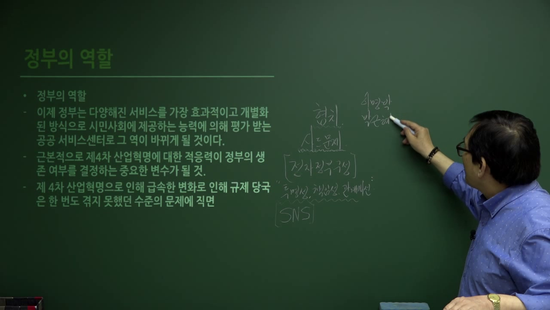 정부의 역할
• 정부의 역할
- 이제 정부는 다양해진 서비스를 가장 효과적이고 개별화
된 방식으로 시민사회에 제공하는 능력에 의해 평가 받는
공공 서비스센터로 그 역이 바뀌게 될 것이다.
- 근본적으로 제4차 산업혁명에 대한 적응력이 정부의 생
존 여부를 결정하는 중요한 변수가 될 것.
- 제 4차 산업혁명으로 인해 급속한 변화로 인해 규제 당국
은 한 번도 겪지 못했던 수준의 문제에 직면
협치
이명박
박근혜
[SNS]